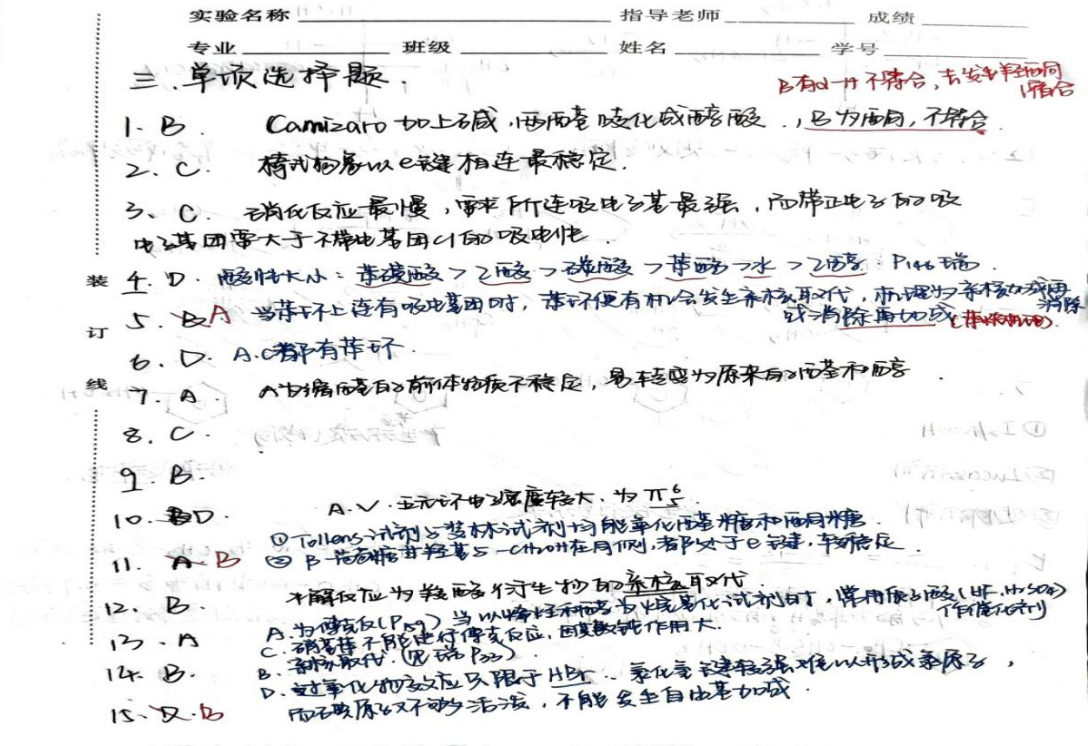 实验名称 指导老师 成绩
专业 班级 姓名 学号
三.单项选择题.
B有α-H不符合,
1. B. Cannizaro 加上碱,两醛歧化成醇酸., B为酮,不符合
2、C. 椅式构象以e键相连最稳定.
3、C. 硝化反应最慢,需求所连吸电子基最强,而带正电子的吸
电子基团要大于不带电基团Cl的吸电性.
装 4. D. 酸性大小: 苯磺酸 > 乙酸 > 碳酸 > 苯酚 > 水 > 乙醇. P146 瑞.
订 5. B A 当苯环上连有吸电基团时,苯环便有机会发生亲核取代,机理为亲核加成再消除
或消除再加成(苯炔机理).
6. D. A.C都有苯环.
线 7. A. A为缩醛的前体物质不稳定,易转变为原来的醛和醇.
8. C.
9 B.
10. D. A. V. 五元环电子密度较大.为 π
① Tollens试剂与斐林试剂均能氧化醛糖和酮糖.
11. A B ② β-葡萄糖苷羟基与-CH2OH在同侧,都处于e键,较稳定.
12. B. 水解反应为羧酸衍生物的亲核取代.
A. 为傅克反(P159) 当以烯烃和醇为烷基化试剂时,常用质子酸(HF.H2SO4)
作催化剂
13、A C. 硝基苯不能进行傅克反应,因其钝作用大.
14. B. B. 亲核取代.(见瑞P33)
D. 过氧化物效应只限于HBr. 氯化氢键较强难以形成氯原子,
15、D. B 而碘原子又不够活泼,不能发生自由基加成.